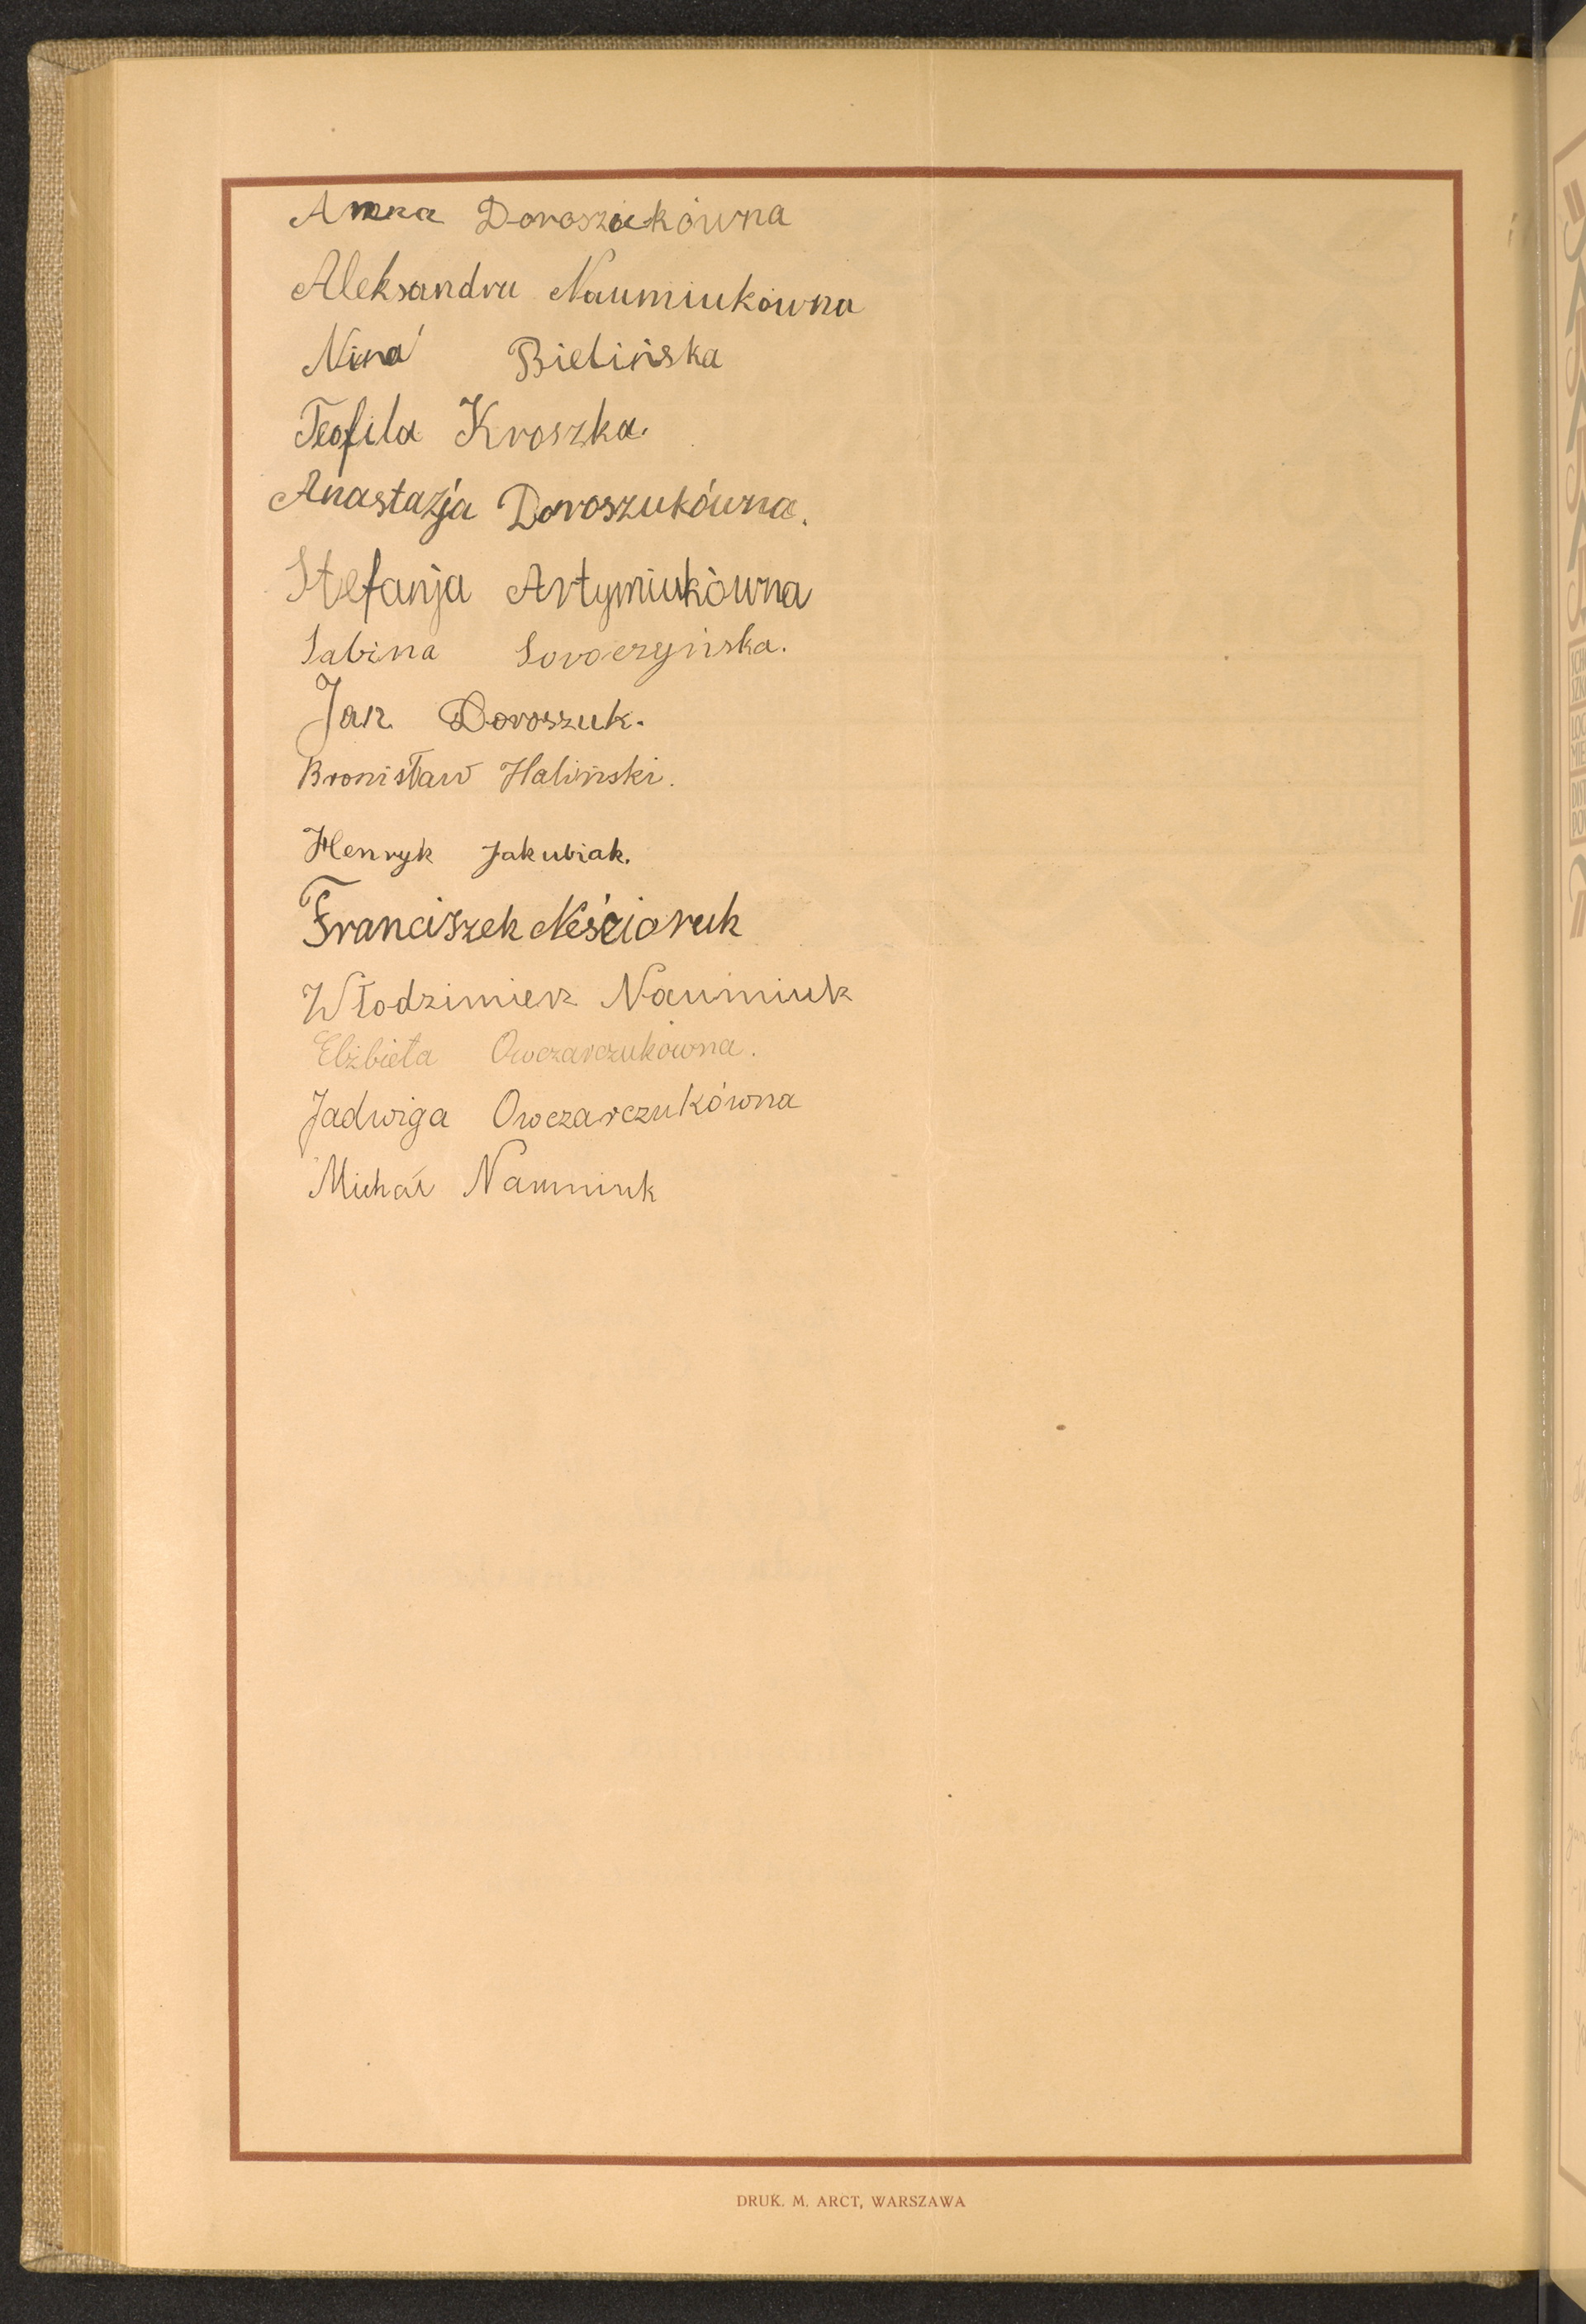 Anna Doroszukówna
Aleksandra Naumiukówna
Nina Bielińska
Teofila Kroszka.
Anastazja Doroszukówna.
Stefanja Artymiukówna
Sabina Soroczyńska.
Jan Doroszuk.
Bronisław Haliński.
Henryk Jakubiak.
Franciszek Neścioruk
Włodzimierz Naumiuk
Elżbieta Owczarczukówna.
Jadwiga Owczarczukówna
Michał Naumiuk
DRUK. M. ARCT, WARSZAWA